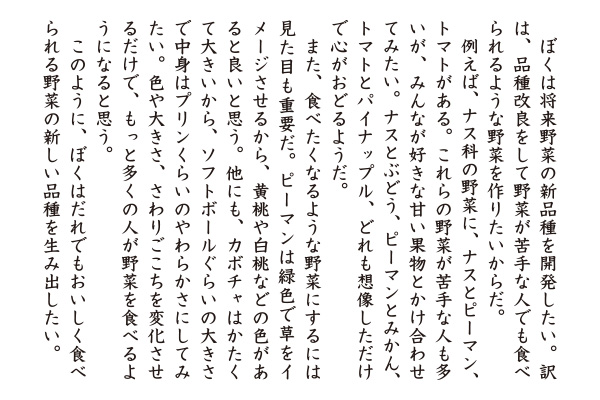 ぼくは将来野菜の新品種を開発したい。訳
は、品種改良をして野菜が苦手な人でも食べ
られるような野菜を作りたいからだ。
　例えば、ナス科の野菜に、ナスとピーマン、
トマトがある。これらの野菜が苦手な人も多
いが、みんなが好きな甘い果物とかけ合わせ
てみたい。ナスとぶどう、ピーマンとみかん、
トマトとパイナップル、どれも想像しただけ
で心がおどるようだ。
　また、食べたくなるような野菜にするには
見た目も重要だ。ピーマンは緑色で草をイ
メージさせるから、黄桃や白桃などの色があ
ると良いと思う。他にも、カボチャはかたく
て大きいから、ソフトボールぐらいの大きさ
で中身はプリンくらいのやわらかさにしてみ
たい。色や大きさ、さわりごこちを変化させ
るだけで、もっと多くの人が野菜を食べるよ
うになると思う。
　このように、ぼくはだれでもおいしく食べ
られる野菜の新しい品種を生み出したい。